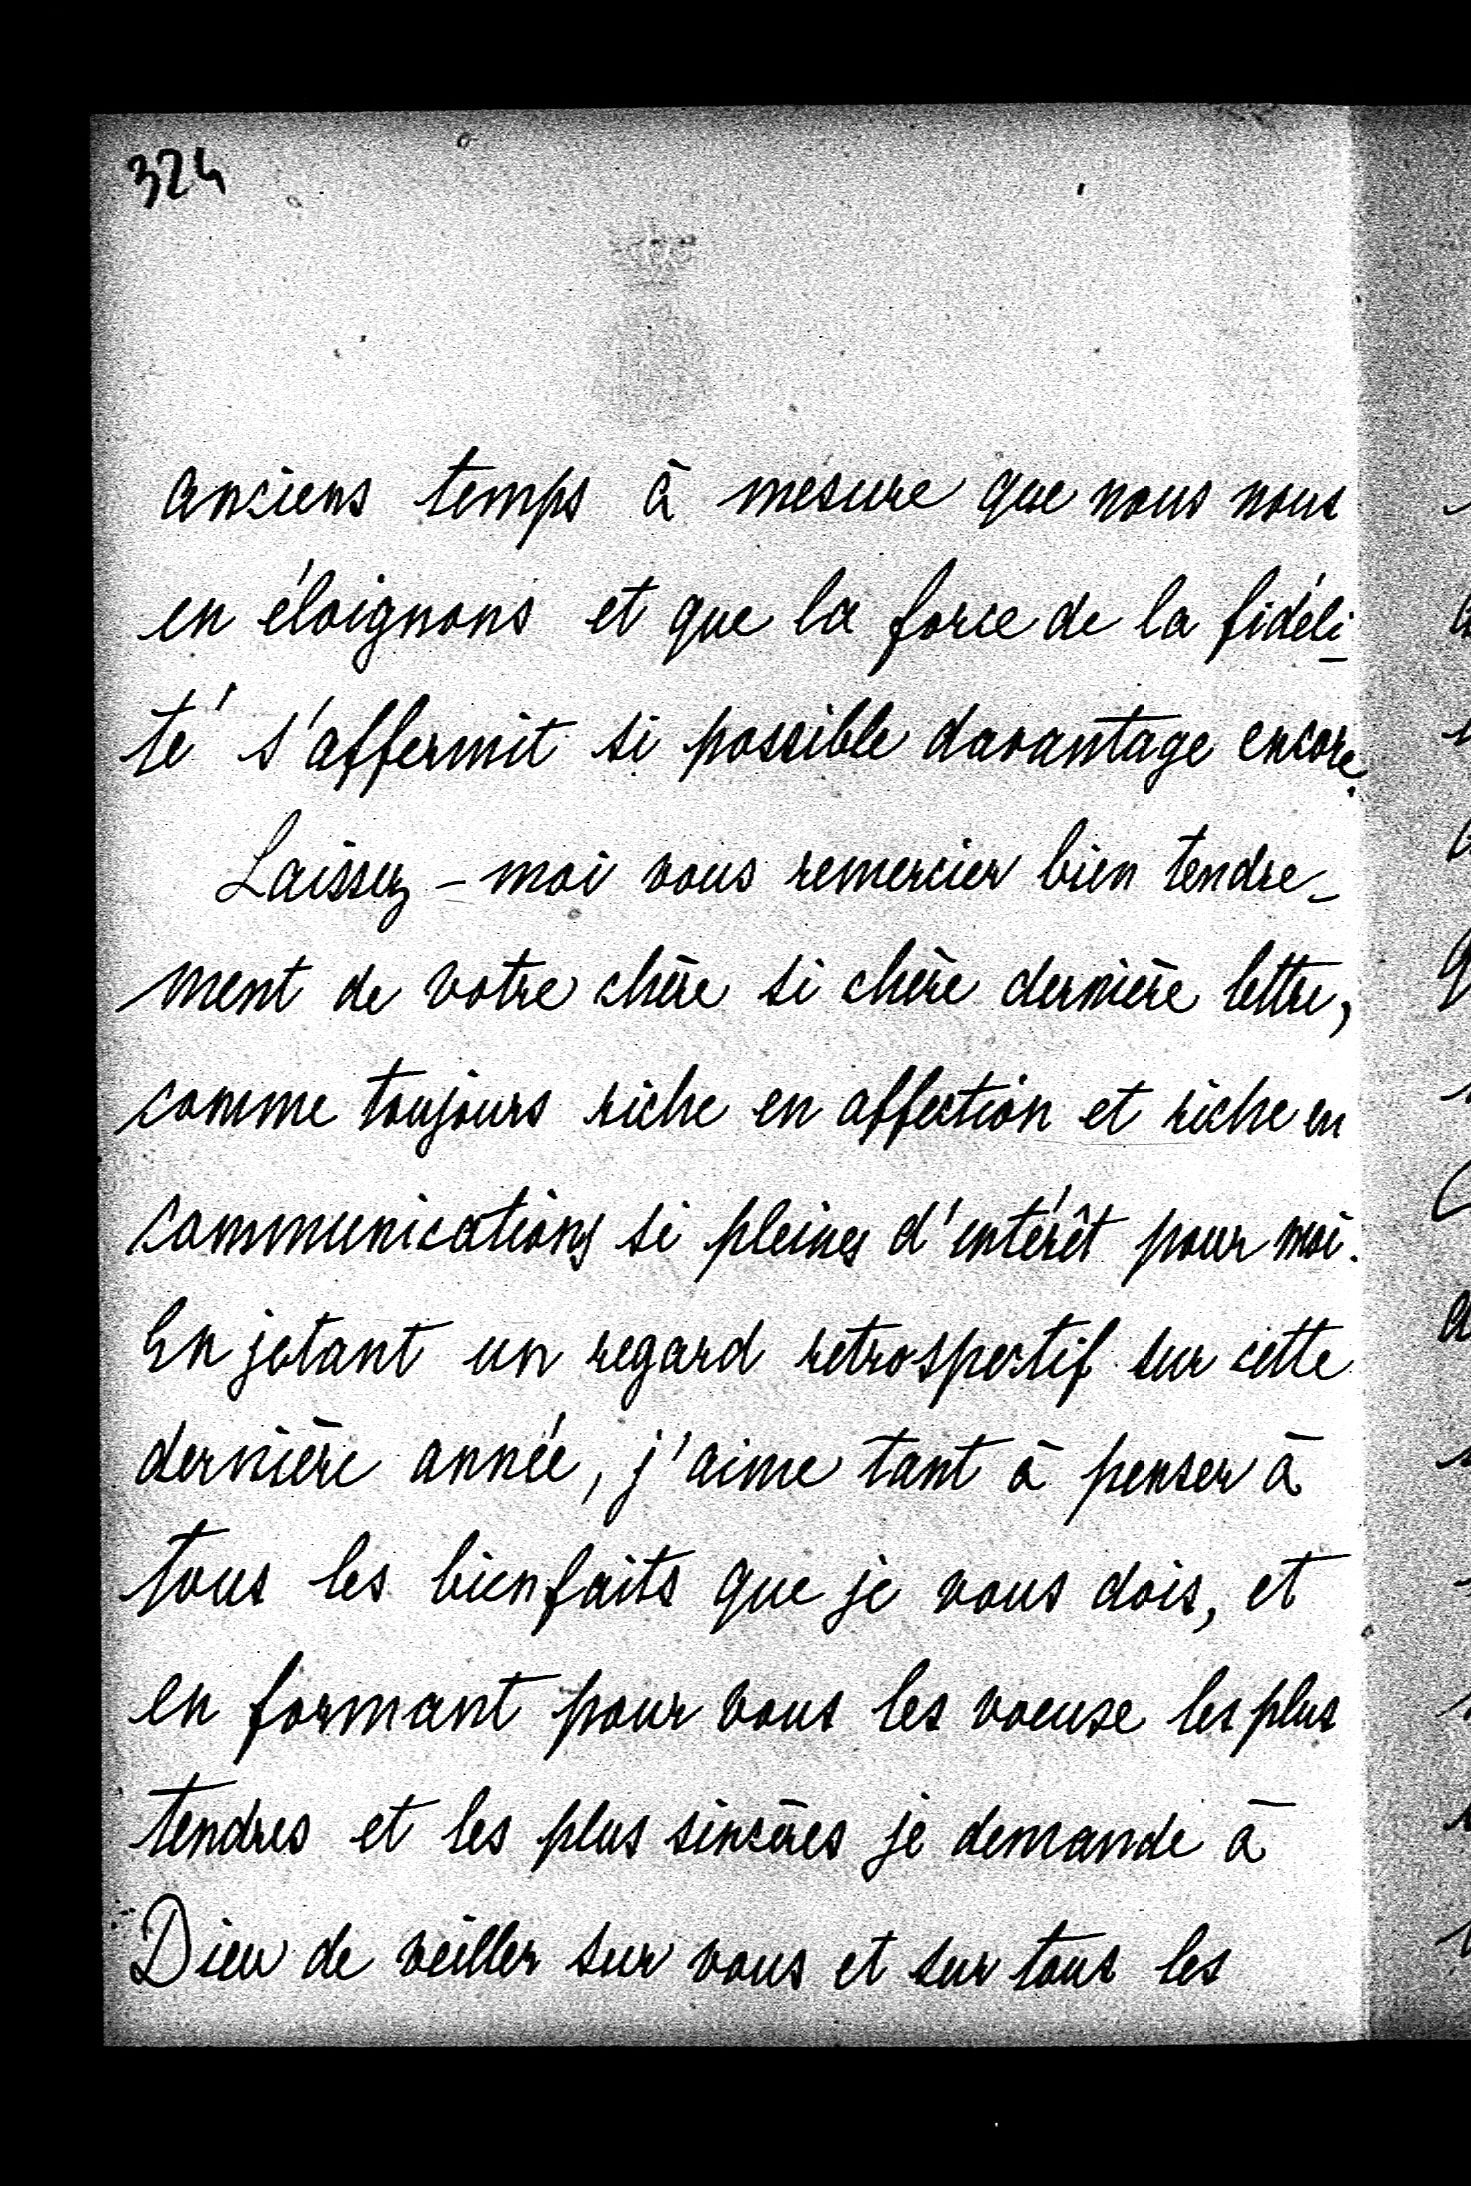 324
anciens temps à mesure que nous nous
en éloignons et que la force de la fidéli-
té s'affermit si possible davantage encore.
Laissez-moi vous remercier bien tendre-
ment de votre chère si chère dernière lettre,
comme toujours riche en affection et riche en
communications si pleines d'intérêt pour moi.
En jetant un regard retrospectif sur cette
dernière année, j'aime tant à penser à
tous les bienfaits que je vous dois, et
en formant pour vous les voeux les plus
tendres et les plus sincères je demande à
Dieu de veiller sur vous et sur tous les